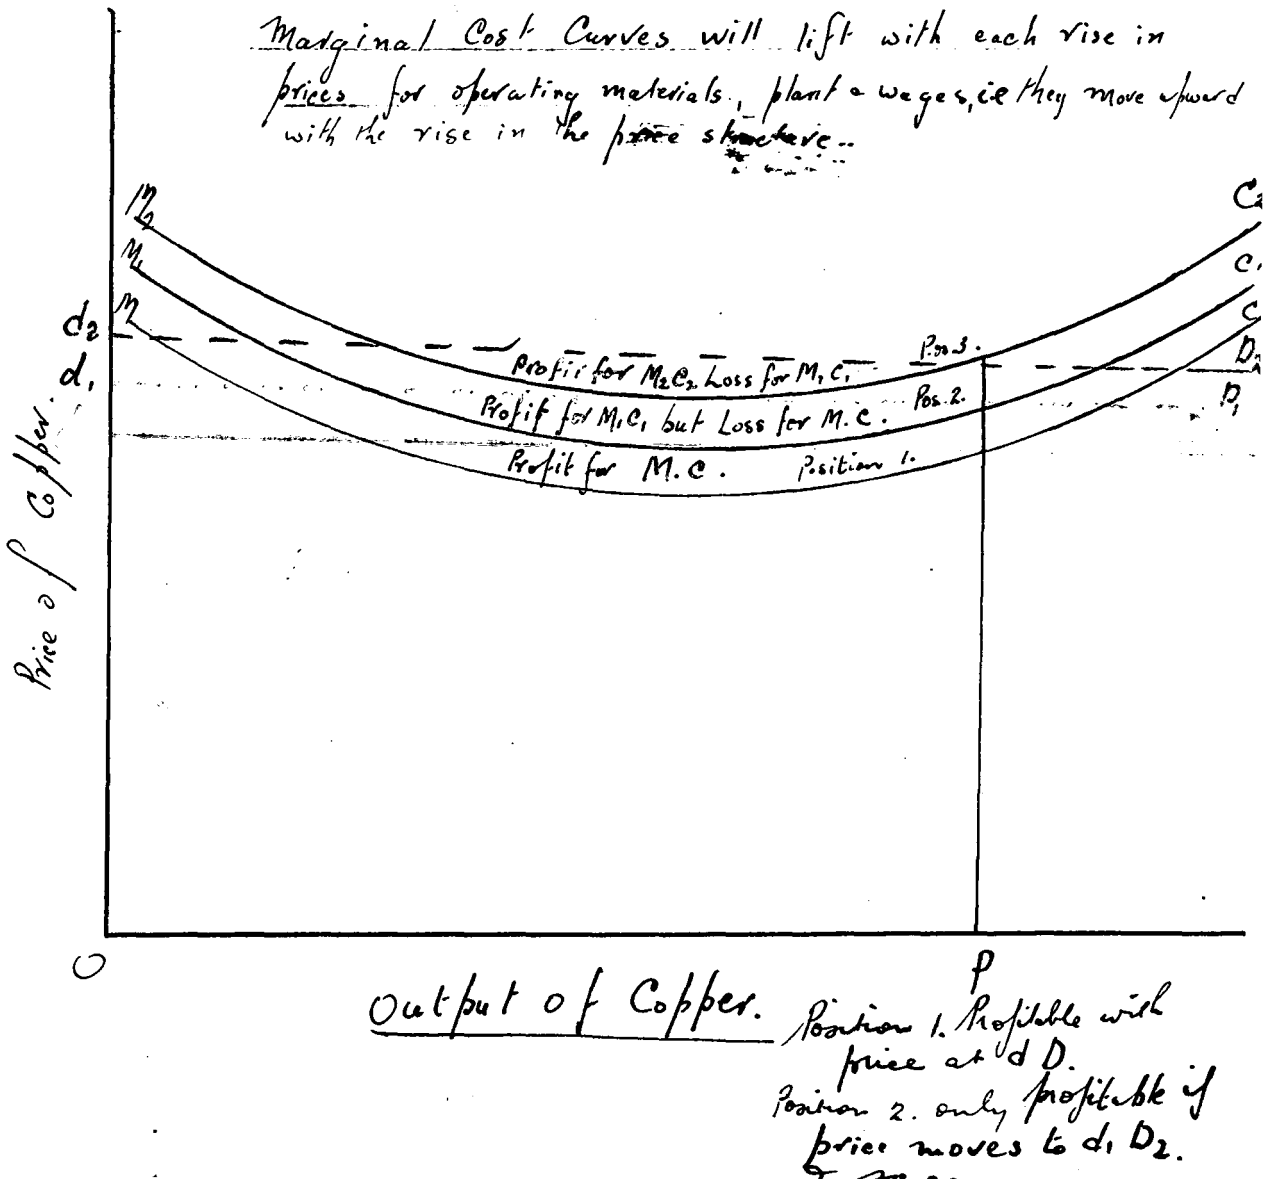 Marginal Cost Curves will lift with each rise in
prices for operating materials, plant & wages, i.e they move upward
with the rise in the price structure..
M2
C2
M1
C1
M
C
d2
Pos. 3.
D2
Profit for M2C2. Loss for M1C1
d1
Pos. 2.
D1
Profit for M1C1 but Loss for M.C.
Profit for M.C. Position 1.
Price of Copper.
O
P
Output of Copper.
Position 1. Profitable with
price at d D.
Position 2. only profitable if
price moves to d1 D2.